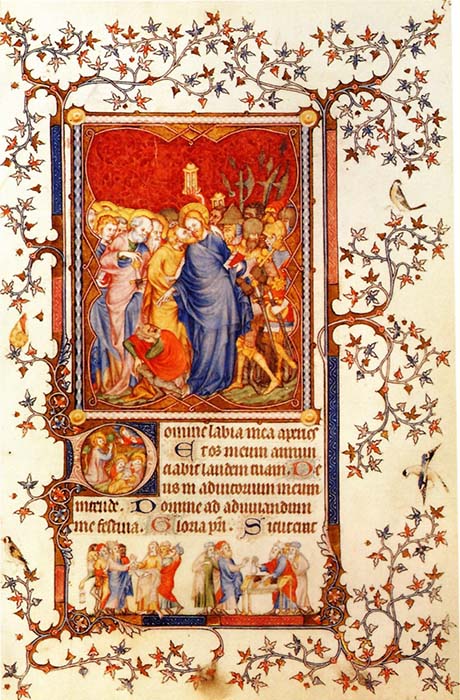 Domine labia mea aperies
Et os meum annun
ciabit laudem tuam. De
us in adiutorium meum
intende. Domine ad adiuuandum
me festina. Gloria pr̄i. Sicut erat